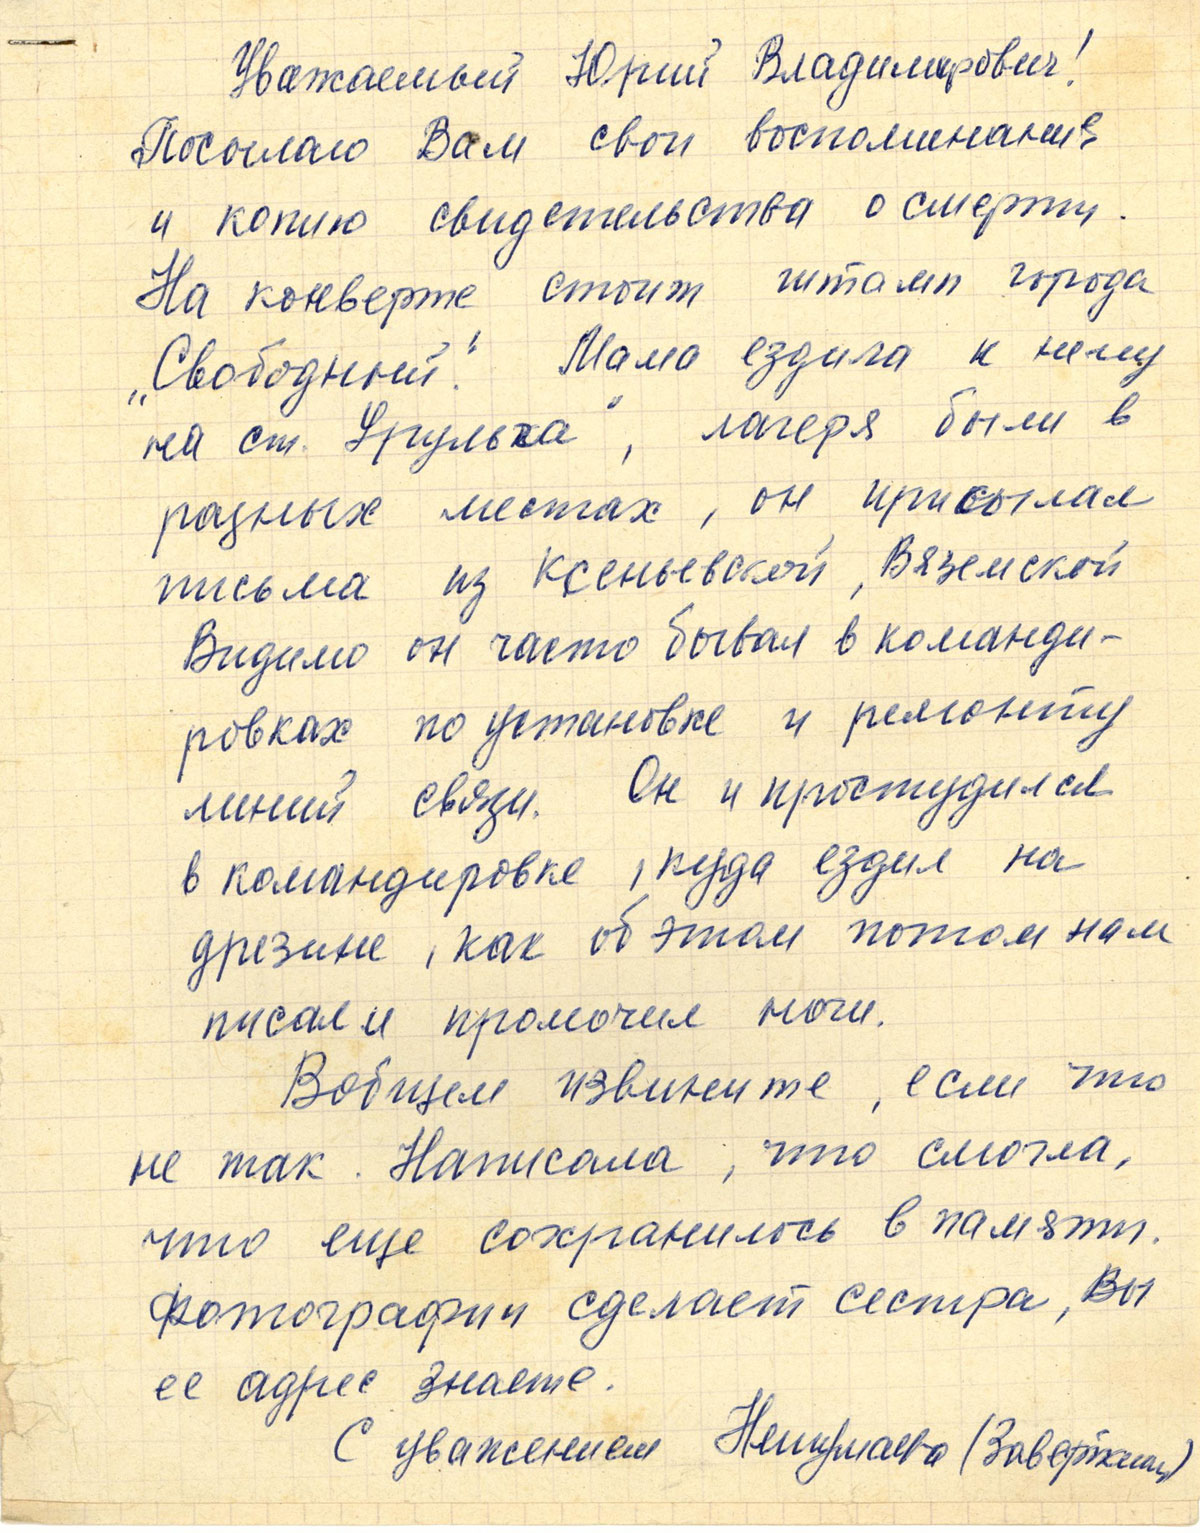 Уважаемый Юрий Владимирович!
Посылаю Вам свои воспоминания
и копию свидетельства о смерти.
На конверте стоит штамп города
„Свободный“. Мама ездила к нему
на ст. Урульга“, лагеря были в
разных местах, он присылал
письма из Ксеньевской, Вяземской
Видимо он часто бывал в команди-
ровках по установке и ремонту
линий связи. Он и простудился
в командировке, куда ездил на
дрезине, как об этом потом нам
писали промочил ноги.
Вобщем извините, если что
не так. Написала, что смогла,
что еще сохранилось в памяти.
Фотографии сделает сестра, Вы
ее адрес знаете.
С уважением